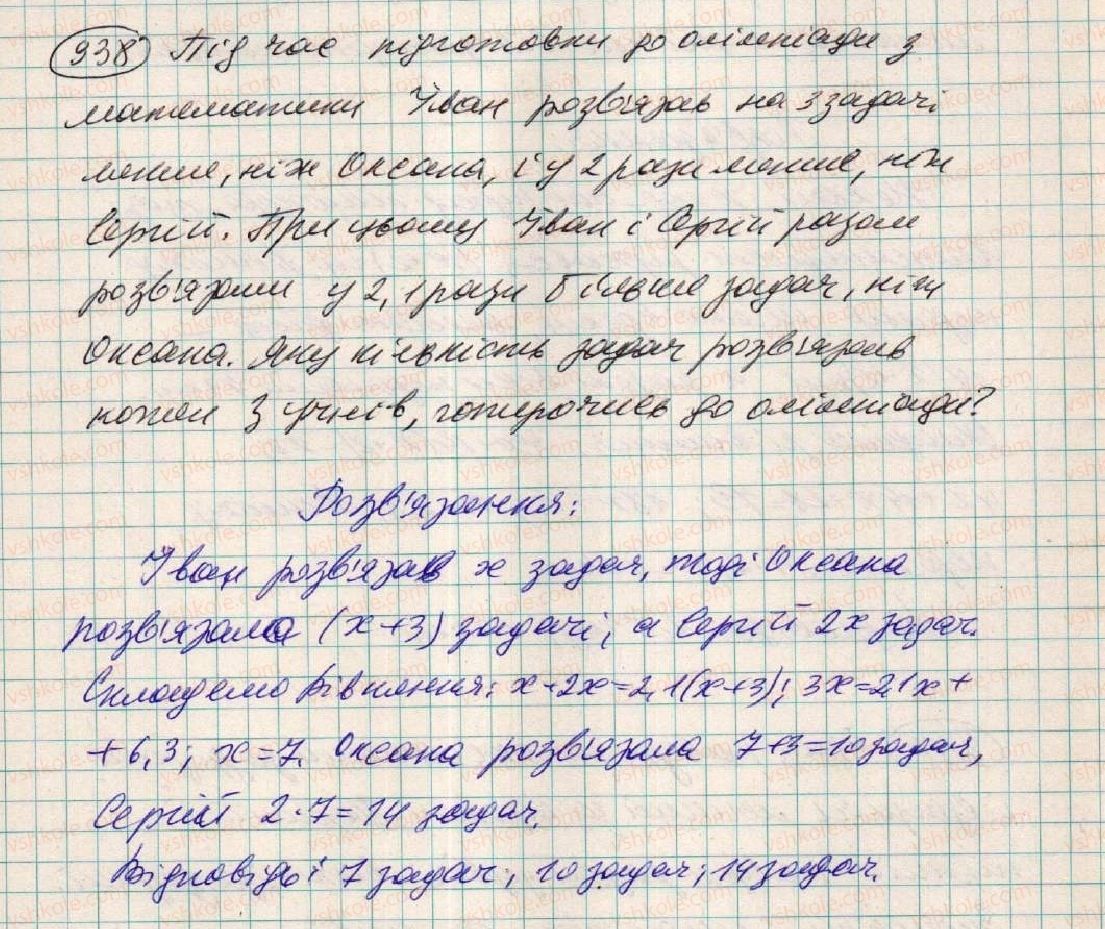 938 Під час підготовки до олімпіади з
математики Іван розв'язав на 3 задачі
менше, ніж Оксана, і у 2 рази менше, ніж
Сергій. При цьому Іван і Сергій разом
розв'язали у 2,1 рази більше задач, ніж
Оксана. Яку кількість задач розв'язав
кожен з учнів, готуючись до олімпіади?
Розв'язання:
Іван розв'язав x задач, тоді Оксана
розв'язала (x+3) задачі, а Сергій 2x задач.
Складемо рівняння: x+2x=2,1(x+3); 3x=2,1x+
+6,3; x=7. Оксана розв'язала 7+3=10 задач,
Сергій 2·7=14 задач.
Відповідь: 7 задач; 10 задач; 14 задач.